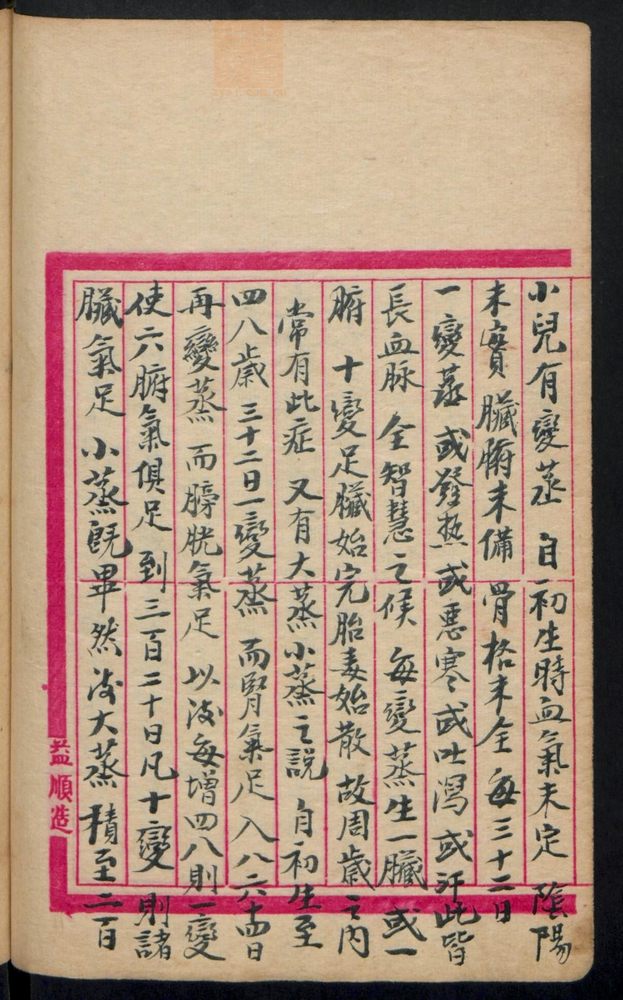 小兒有變蒸 自初生時血氣未定 陰陽
未實 臟腑未備 骨格未全 每三十二日
一變蒸 或發热 或惡寒 或吐瀉 或汗此皆
長血脉 全智慧之候 每變蒸生一臟 或一
腑 十變足臟始完胎毒始散 故周歲之內
常有此症 又有大蒸小蒸之説 自初生至
四八歲 三十二日一變蒸 而腎氣足 入八六十四日
再變蒸 而膀胱氣足 以後每增四八則一變
使六腑氣俱足 到三百二十日凡十變 則諸
臟氣足 小蒸既畢 然後大蒸 積至二百
益順造